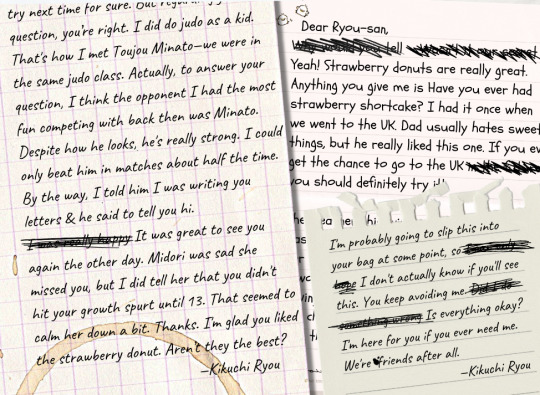 try next time for sure. But regarding your
question, you're right. I did do judo as a kid.
That's how I met Toujou Minato—we were in
the same judo class. Actually, to answer your
question, I think the opponent I had the most
fun competing with back then was Minato.
Despite how he looks, he's really strong. I could
only beat him in matches about half the time.
By the way, I told him I was writing you
letters & he said to tell you hi.
I was really happy It was great to see you
again the other day. Midori was sad she
missed you, but I did tell her that you didn't
hit your growth spurt until 13. That seemed to
calm her down a bit. Thanks. I'm glad you liked
the strawberry donut. Aren't they the best?
—Kikuchi Ryou
Dear Ryou-san,
Why would you tell
Yeah! Strawberry donuts are really great.
Anything you give me is Have you ever had
strawberry shortcake? I had it once when
we went to the UK. Dad usually hates sweet
things, but he really liked this one. If you ev
get the chance to go to the UK
you should definitely try it!
I'm probably going to slip this into
your bag at some point, so
hope I don't actually know if you'll see
this. You keep avoiding me. Did I do
something wrong Is everything okay?
I'm here for you if you ever need me.
We're friends after all.
—Kikuchi Ryou